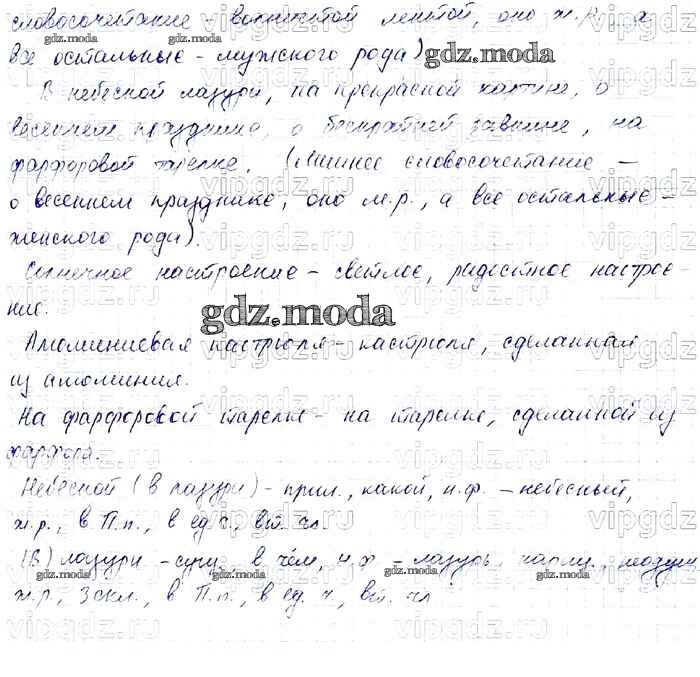 словосочетание – волнистой лентой, оно ж.р., а
все остальные – мужского рода)
gdz.moda
В небесной лазури, на прекрасной картине, о
весеннем празднике, о бескрайней, на
фарфоровой тарелке. (Лишнее словосочетание –
о весеннем празднике, оно м.р., а все остальные –
женского рода).
Солнечное настроение – светлое, радостное настрое-
ние.
gdz.moda
Алюминиевая кастрюля – кастрюля, сделанная
из алюминия.
На фарфоровой тарелке – на тарелке, сделанной из
фарфора.
Небесной (в лазури) – прил., какой, н.ф. – небесный,
ж.р., в П.п., в ед.ч., вт. чл.
(В) лазури – сущ., в чём, н.ф. – лазурь, нариц., неодуш.
ж.р., 3 скл., в П.п., в ед.ч., вт. чл.